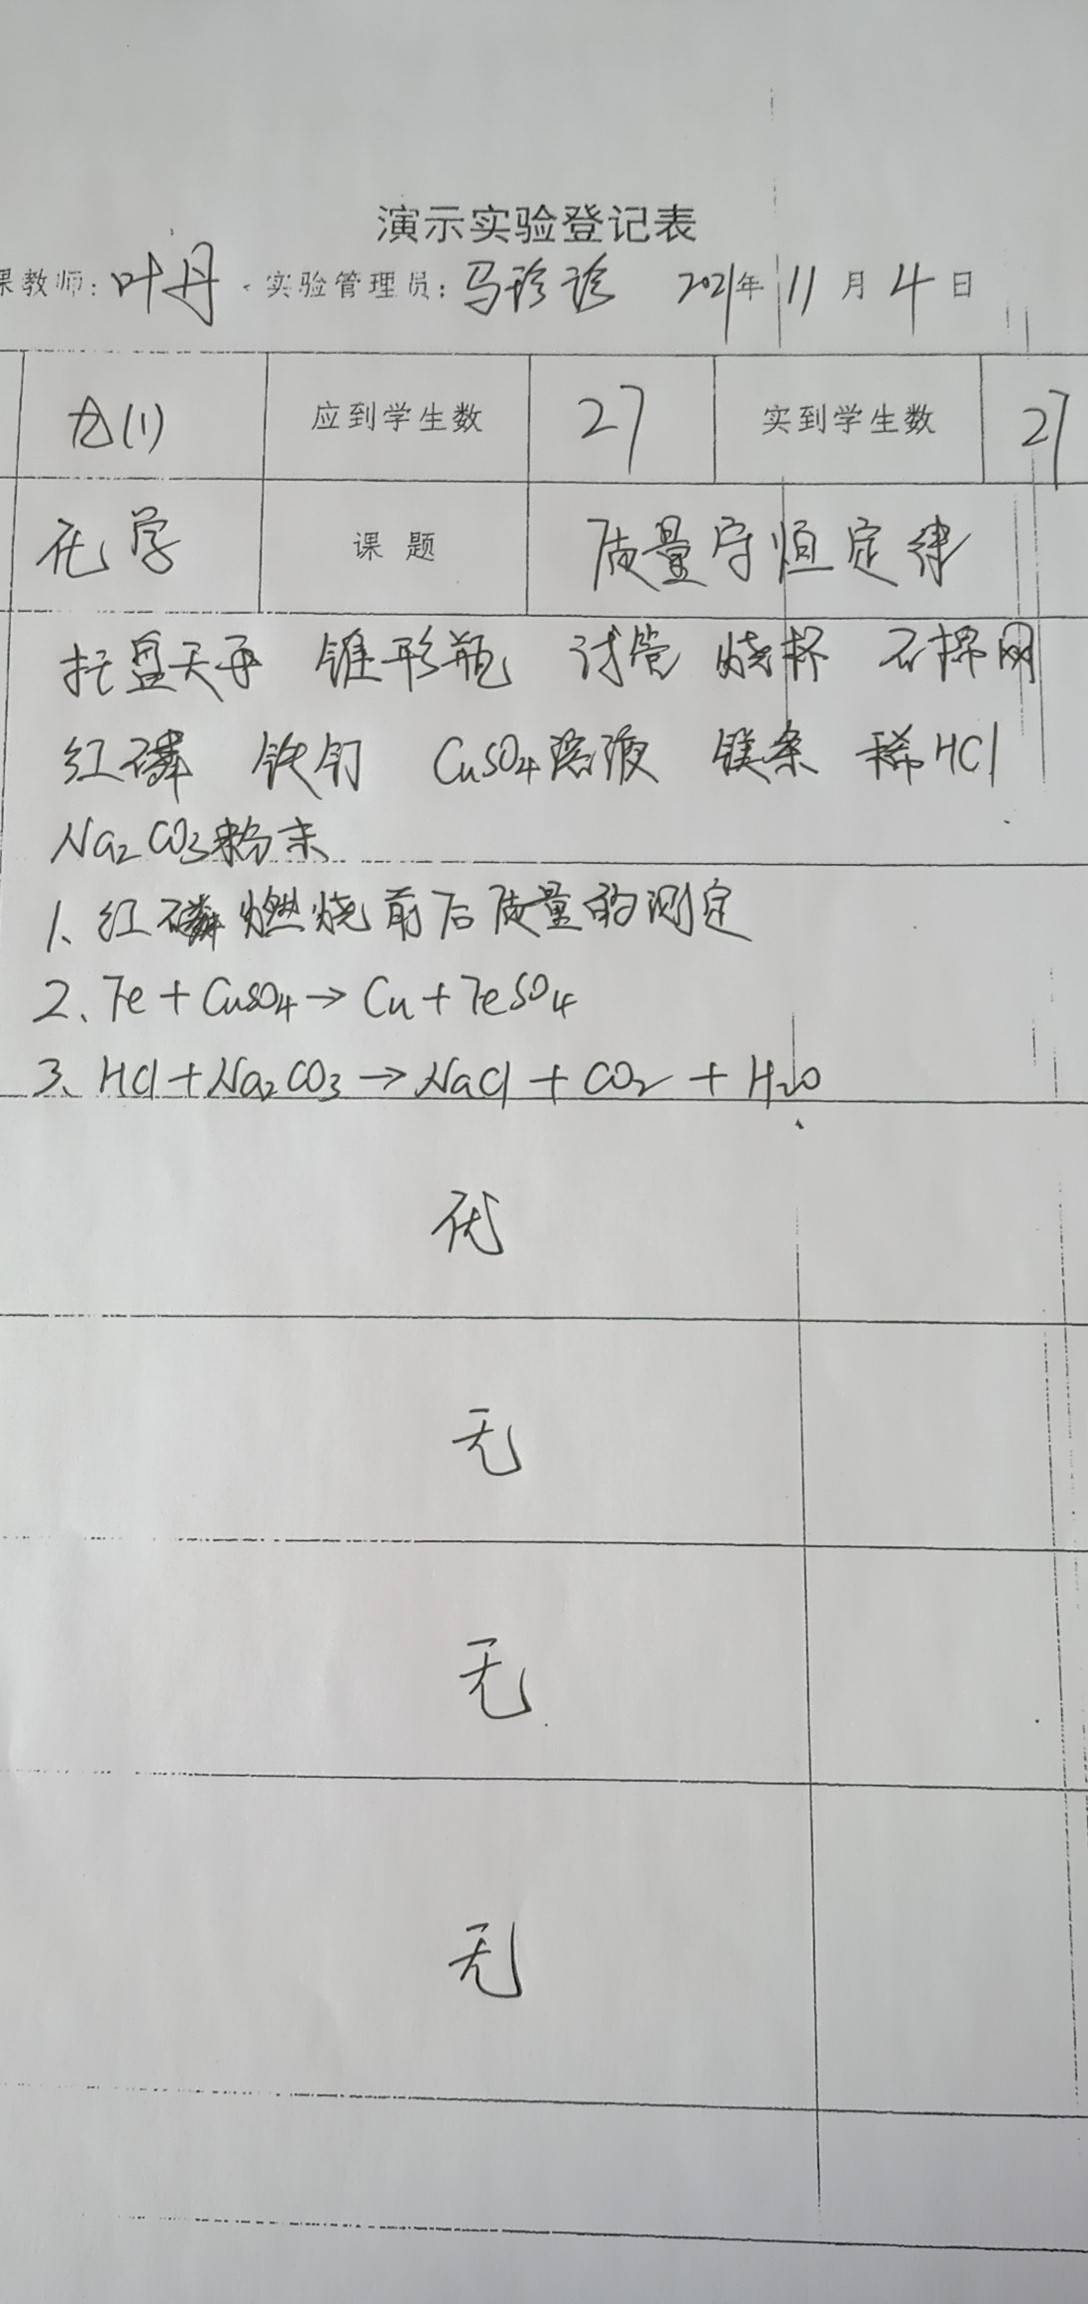 演示实验登记表
课教师:叶丹 实验管理员:马珍珍 2021年11月4日
九(1) 应到学生数 27 实到学生数 27
化学 课题 质量守恒定律
托盘天平 锥形瓶 试管 烧杯 石棉网
红磷 铁钉 CuSO4溶液 镁条 稀HCl
Na2CO3粉末
1、红磷燃烧前后质量的测定
2、Fe+CuSO4→Cu+FeSO4
3、HCl+Na2CO3→NaCl+CO2+H2O
优
无
无
无